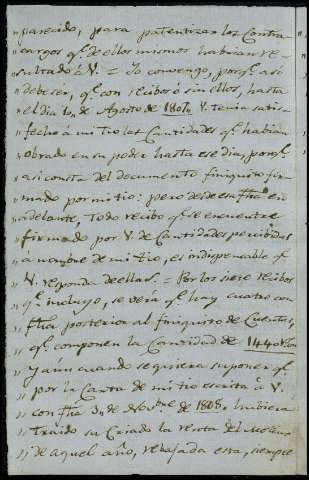 "parecido, para patentizar los Contra-
"cargos q.e de ellos mismos habian re-
"sultado á V. = Yo convengo, porq.e asi
"debe ser, q.e con recibos ó sin ellos, hasta
"el dia 10 de Agosto de 1807 V. tenia satis-
"fecho á mi tio las Cantidades q.e habian
"obrado en su poder hasta ese dia, porq.e
"asi consta del documento finiquito fir-
"mado por mi tio: pero desde esa fha en
"adelante, todo recibo q.e se encuentre
"firmado por V. de Cantidades percibidas
"a nombre de mi tio, es indispensable q.e
"V. responda de ellas. = Por los siete recibos
"q.e incluyo, se verá q.e hay cuatro con
"fha posterior al finiquito de Cuentas,
"q.e componen la Cantidad de 1440
"Y aun cuando se quiera suponer q.e
"por la Carta de mi tio escrita á V.
"con fha 3, de Nov.bre de 1808, hubiera
"traido su Criado la renta del Molino
"de aquel año, rebajada esta, siempre